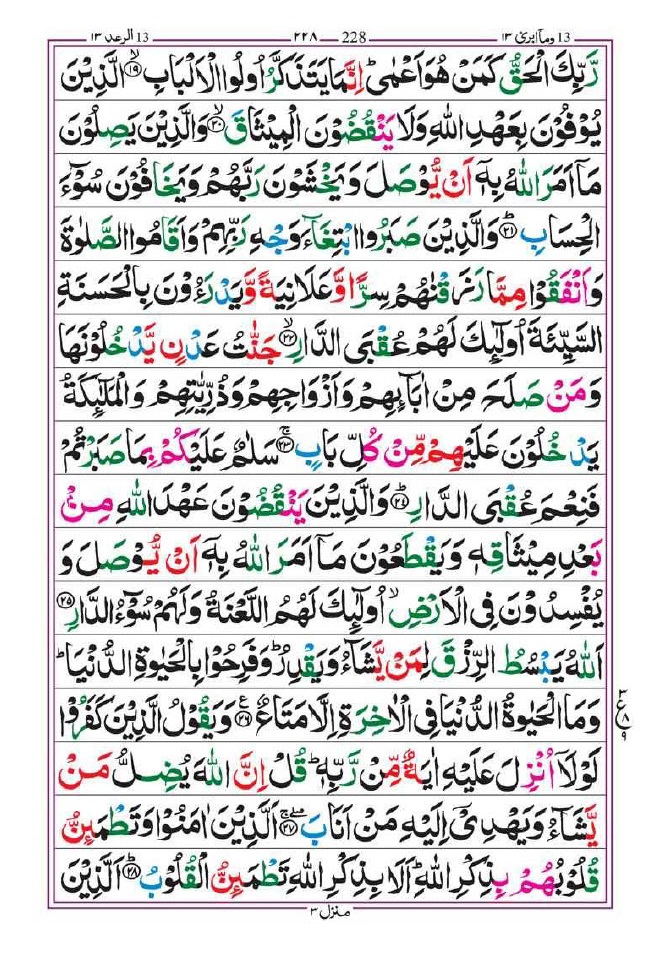 الرعد ١٣ 13 ٢٢٨ — 228 وما ابرئ ١٣ 13
رَّبِّكَ الْحَقُّ كَمَنْ هُوَ اَعْمٰىؕ اِنَّمَا يَتَذَكَّرُ اُولُوا الْاَلْبَابِۙ‏﴿۱۹﴾ الَّذِيْنَ
يُوْفُوْنَ بِعَهْدِ اللّٰهِ وَلَا يَنْقُضُوْنَ الْمِيْثَاقَۙ‏﴿۲۰﴾ وَالَّذِيْنَ يَصِلُوْنَ
مَاۤ اَمَرَ اللّٰهُ بِهٖۤ اَنْ يُّوْصَلَ وَ يَخْشَوْنَ رَبَّهُمْ وَيَخَافُوْنَ سُوْٓءَ
الْحِسَابِؕ‏﴿۲۱﴾ وَالَّذِيْنَ صَبَرُوا ابْتِغَآءَ وَجْهِ رَبِّهِمْ وَاَقَامُوا الصَّلٰوةَ
وَاَنْفَقُوْا مِمَّا رَزَقْنٰهُمْ سِرًّا وَّعَلَانِيَةً وَّيَدْرَءُوْنَ بِالْحَسَنَةِ
السَّيِّئَةَ اُولٰٓئِكَ لَهُمْ عُقْبَى الدَّارِۙ‏﴿۲۲﴾ جَنّٰتُ عَدْنٍ يَّدْخُلُوْنَهَا
وَمَنْ صَلَحَ مِنْ اٰبَآئِهِمْ وَاَزْوَاجِهِمْ وَذُرِّيّٰتِهِمْ وَالْمَلٰٓئِكَةُ
يَدْخُلُوْنَ عَلَيْهِمْ مِّنْ كُلِّ بَابٍۚ‏﴿۲۳﴾ سَلٰمٌ عَلَيْكُمْ بِمَا صَبَرْتُمْ
فَنِعْمَ عُقْبَى الدَّارِؕ‏﴿۲۴﴾ وَالَّذِيْنَ يَنْقُضُوْنَ عَهْدَ اللّٰهِ مِنْۢ
بَعْدِ مِيْثَاقِهٖ وَيَقْطَعُوْنَ مَاۤ اَمَرَ اللّٰهُ بِهٖۤ اَنْ يُّوْصَلَ وَ
يُفْسِدُوْنَ فِى الْاَرْضِۙ اُولٰٓئِكَ لَهُمُ اللَّعْنَةُ وَلَهُمْ سُوْٓءُ الدَّارِ‏﴿۲۵﴾
اَللّٰهُ يَبْسُطُ الرِّزْقَ لِمَنْ يَّشَآءُ وَيَقْدِرُؕ وَفَرِحُوْا بِالْحَيٰوةِ الدُّنْيَاؕ
وَمَا الْحَيٰوةُ الدُّنْيَا فِى الْاٰخِرَةِ اِلَّا مَتَاعٌ‏﴿۲۶﴾ وَيَقُوْلُ الَّذِيْنَ كَفَرُوْا
لَوْلَاۤ اُنْزِلَ عَلَيْهِ اٰيَةٌ مِّنْ رَّبِّهٖؕ قُلْ اِنَّ اللّٰهَ يُضِلُّ مَنْ
يَّشَآءُ وَيَهْدِىْۤ اِلَيْهِ مَنْ اَنَابَۖۚ‏﴿۲۷﴾ اَلَّذِيْنَ اٰمَنُوْا وَتَطْمَئِنُّ
قُلُوْبُهُمْ بِذِكْرِ اللّٰهِؕ اَلَا بِذِكْرِ اللّٰهِ تَطْمَئِنُّ الْقُلُوْبُؕ‏﴿۲۸﴾ اَلَّذِيْنَ
٣ ع ٨ ٩
منزل ٣